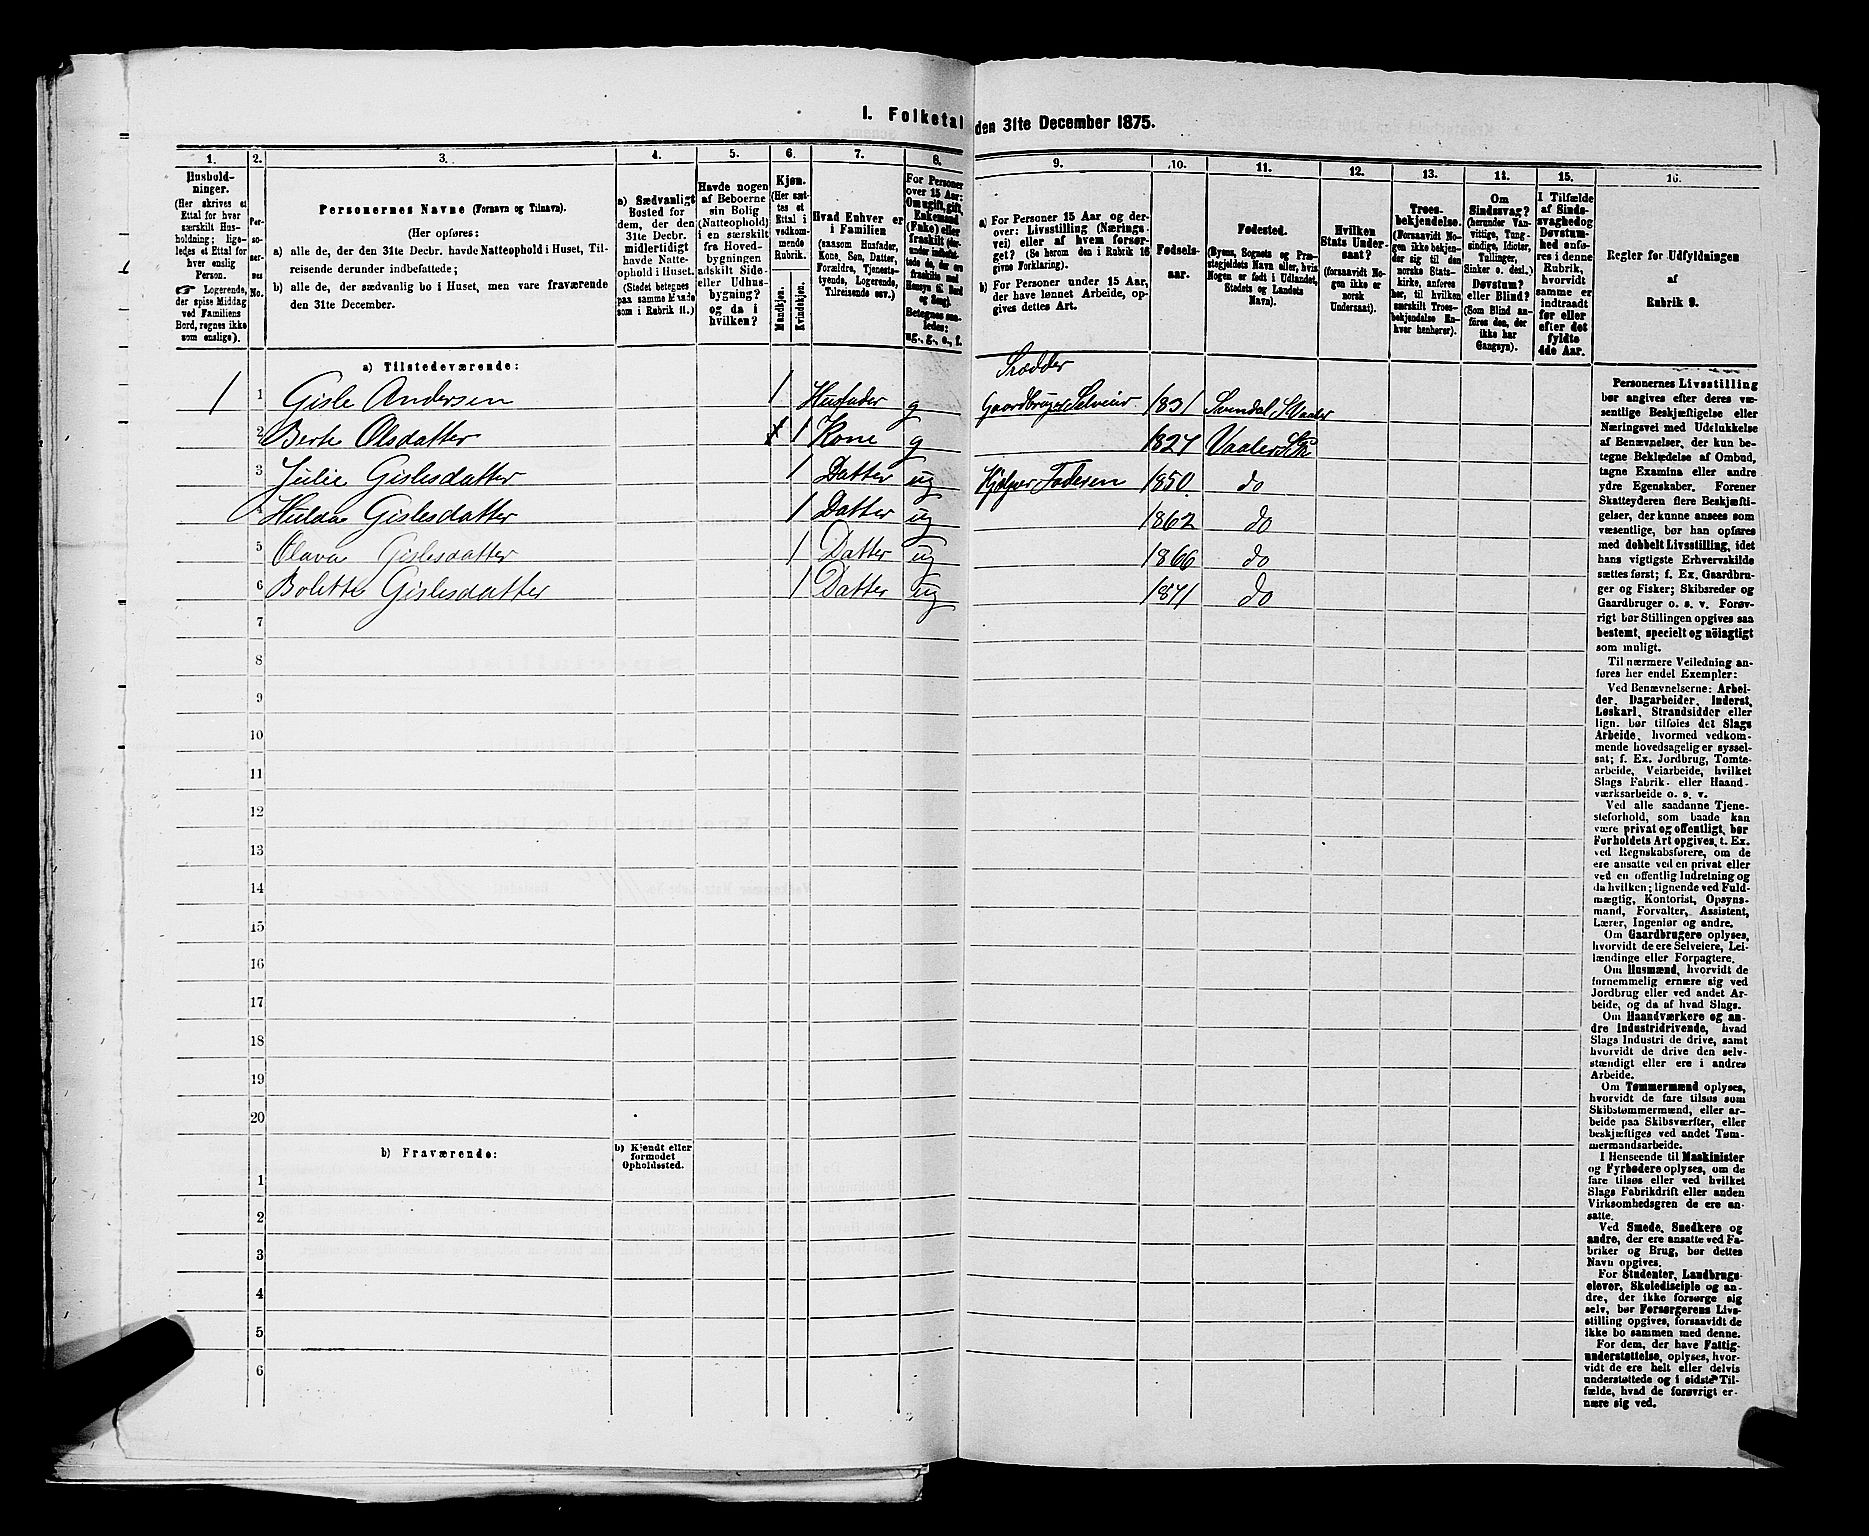 I. Folketal den 31te December 1875.
1. 2. 3. 4. 5. 6. 7. 8. 9. 10. 11. 12. 13. 14. 15. 16.
Husholdninger.
(Her skrives et
Ettal for hver
særskilt Hus-
holdning; lige-
ledes et Ettal for
hver enslig
Person.
☛ Logerende,
der spise Middag
ved Familiens
Bord, regnes ikke
som enslige).
Per-
so-
ner-
nes
No.
Personernes Navne (Fornavn og Tilnavn).
(Her opføres:
a) alle de, der den 31te Decbr. havde Natteophold i Huset, Til-
reisende derunder indbefattede;
b) alle de, der sædvanlig bo i Huset, men vare fraværende
den 31te December.
a) Sædvanligt
Bosted for
dem, der den
31te Decbr.
midlertidigt
havde Natte-
ophold i Huset.
(Stedet betegnes
paa samme Maade
som i Rubrik 11.)
Havde nogen
af Beboerne
sin Bolig
(Natteophold)
i en særskilt
fra Hoved-
bygningen
adskilt Side-
eller Udhus-
bygning?
og da i
hvilken?
Kjøn.
(Her sæt-
tes et
Ettal i
vedkom-
mende
Rubrik.
Mandkjøn.
Kvindekjøn.
Hvad Enhver er
i Familien
(saasom Husfader,
Kone, Søn, Datter,
Forældre, Tjeneste-
tyende, Logerende,
Tilreisende osv.)
For Personer
over 15 Aar:
Om ugift, gift,
Enkemand
(Enke) eller
fraskilt
Betegnes saa-
ledes:
ug., g., e., f.
a) For Personer 15 Aar og der-
over: Livsstilling (Nærings-
vei) eller af hvem forsør-
get? (Se herom den i Rubrik 16
givne Forklaring).
b) For Personer under 15 Aar,
der have lønnet Arbeide, op-
gives dettes Art.
Fødsels-
aar.
Fødested.
(Byens, Sognets og Præ-
stegjeldets Navn eller, hvis
Nogen er født i Udlandet,
Stedets og Landets
Navn).
Hvilken
Stats Under-
saat?
(forsaavidt No-
gen ikke er
norsk
Undersaat).
Troes-
bekjendelse.
(Forsaavidt No-
gen ikke bekjen-
der sig til den
norske Stats-
kirke, anføres
her, til hvilken
særskilt Troes-
bekjendelse En-
hver henhører).
Om
Sindssvag?
(herunder Van-
vittige, Tung-
sindige, Idioter,
Tullinger,
Sinker o. desl.)
Døvstum?
eller Blind?
(Som Blind an-
føres den, der
ikke har
Gangsyn).
I Tilfælde
af Sinds-
svaghed og
Døvstum-
hed anfø-
res i denne
Rubrik,
hvorvidt
samme er
indtraadt
før eller
efter det
fyldte
4de Aar.
Regler for Udfyldningen
af
Rubrik 9.
a) Tilstedeværende:
Skrædder
1 1 Gisle Andersen 1 Husfader g Gaardbruger Selveier 1831
2 Berte Olsdatter 1 Kone g 1827
3 Julie Gislesdatter 1 Datter ug Hjelper Faderen 1850 do
4 Hulda Gislesdatter 1 Datter ug 1862 do
5 Olava Gislesdatter 1 Datter ug 1866 do
6 Bolette Gislesdatter 1 Datter ug 1871 do
7
8
9
10
11
12
13
14
15
16
17
18
19
20
b) Fraværende:
b) Kjendt eller
formodet
Opholdssted.
1
2
3
4
5
6
Personernes Livsstilling
bør angives efter deres væ-
sentlige Beskjæftigelse eller
Næringsvei med Udelukkelse
af Benævnelser, der kun be-
tegne Beklædelse af Ombud,
tagne Examina eller andre
ydre Egenskaber. Forener
Skatteyderen flere Beskjæfti-
gelser, der kunne ansees som
væsentlige, bør han opføres
med dobbelt Livsstilling, idet
hans vigtigste Erhvervskilde
sættes først; f. Ex. Gaardbru-
ger og Fisker; Skibsreder og
Gaardbruger o. s. v. Forøv-
rigt bør Stillingen opgives saa
bestemt, specielt og nöiagtigt
som muligt.
Til nærmere Veiledning an-
føres her endel Exempler:
Ved Benævnelserne: Arbei-
der, Dagarbeider, Inderst,
Løskarl, Strandsidder eller
lign. bør tilføies det Slags
Arbeide, hvormed vedkom-
mende hovedsagelig er syssel-
sat; f. Ex. Jordbrug, Tomte-
arbeide, Veiarbeide, hvilket
Slags Fabrik- eller Haand-
værksarbeide o. s. v.
Ved alle saadanne Tjene-
steforhold, som baade kan
være privat og offentligt, bør
Forholdets Art opgives, t. Ex.
ved Regnskabsførere, om de
ere ansatte ved en privat eller
ved en offentlig Indretning og
da hvilken; lignende ved Fuld-
mægtig, Kontorist, Opsyns-
mand, Forvalter, Assistent,
Lærer, Ingeniør og andre.
Om Gaardbrugere oplyses,
hvorvidt de ere Selveiere, Lei-
lændinge eller Forpagtere.
Om Husmænd, hvorvidt de
fornemmelig ernære sig ved
Jordbrug eller ved andet Ar-
beide, og da af hvad Slags.
Om Haandværkere og an-
dre Industridrivende, hvad
Slags Industri de drive, samt
hvorvidt de drive den selv-
stændigt eller ere i andres
Arbeide.
Om Tømmermænd oplyses,
hvorvidt de fare tilsøs som
Skibstømmermænd, eller ar-
beide paa Skibsværfter, eller
beskjæftiges ved andet Tøm-
mermandsarbeide.
I Henseende til Maskinister
og Fyrbødere oplyses, om de
fare tilsøs eller ved hvilket
Slags Fabrikdrift eller anden
Virksomhedsgren de ere an-
satte.
Ved Smede, Snedkere og
andre, der ere ansatte ved Fa-
briker og Brug, bør dettes
Navn opgives.
For Studenter, Landbrugs-
elever, Skoledisciple og an-
dre, der ikke forsørge sig
selv, bør Forsørgerens Livs-
stilling opgives, forsaavidt de
ikke bo sammen med denne.
For dem, der have Fattig-
understøttelse, oplyses, hvor-
vidt de ere helt eller delvis
understøttede og i sidste Til-
fælde, hvad de forøvrigt er-
nære sig ved.